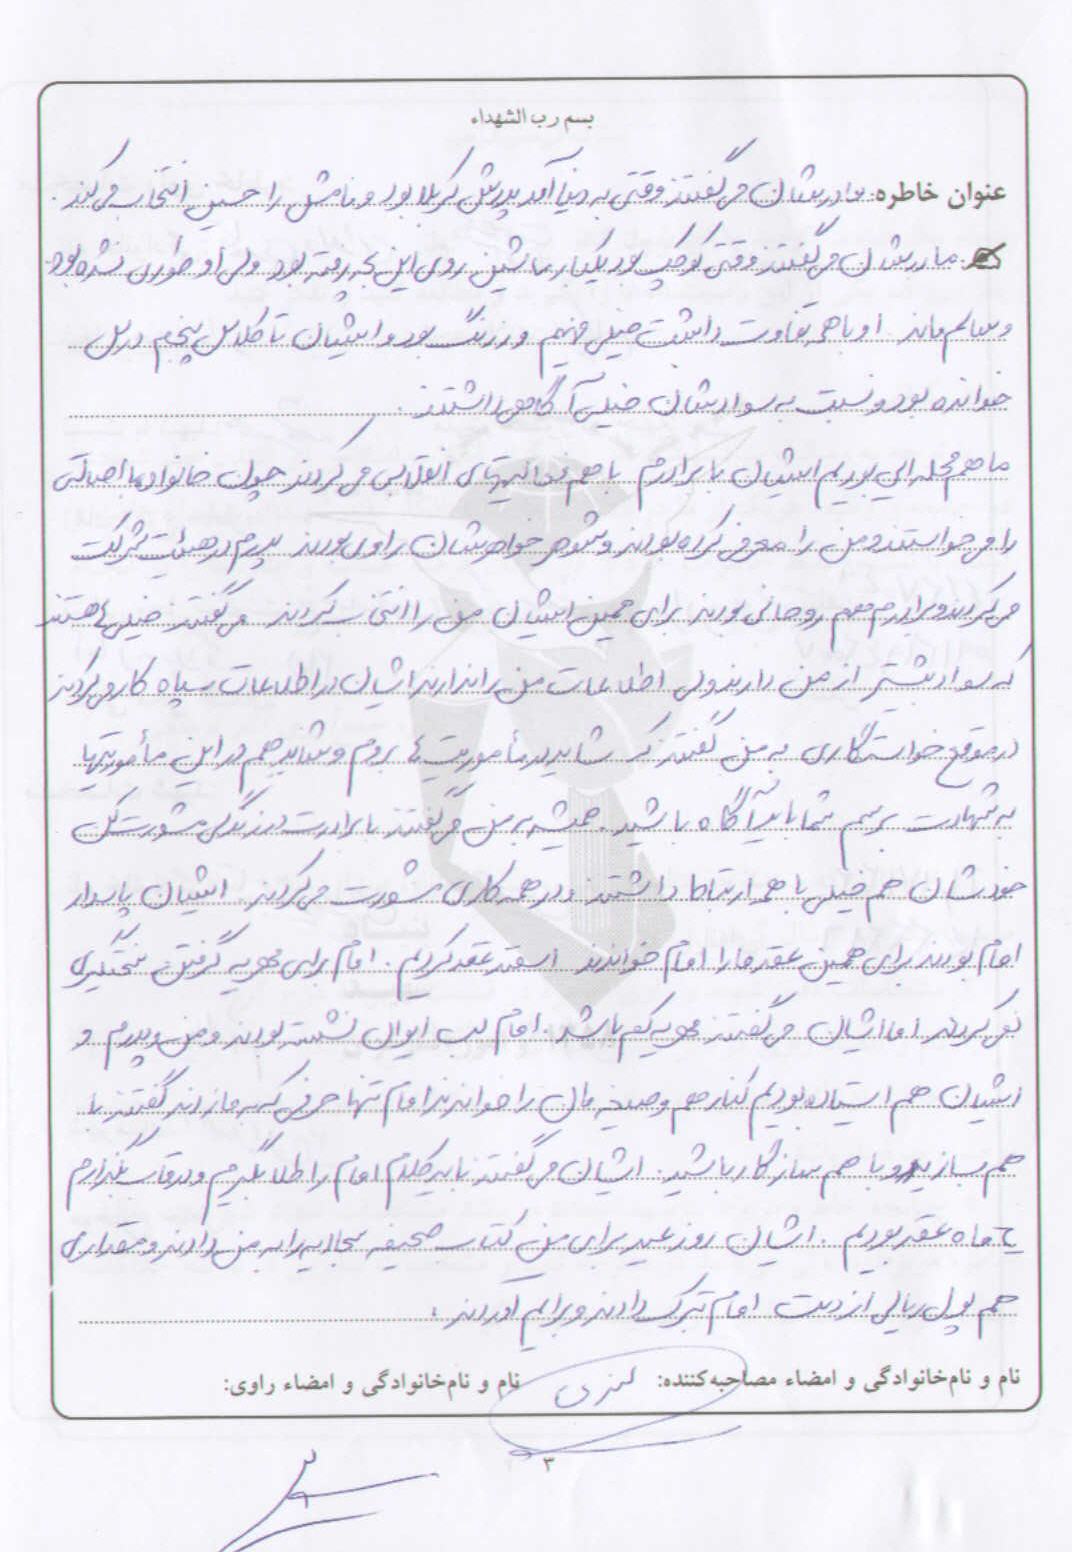 بسم رب الشهداء
عنوان خاطره: مادرشان می‌گفتند وقتی به دنیا آمد پدرش کربلا بود و نامش را حسین انتخاب می‌کند.
مادرشان می‌گفتند وقتی کوچک بود یکبار ماشین روی این بچه رفته بود ولی او طوری نشده بود
و سالم ماند. او با همه تفاوت داشت خیلی فهیم و زرنگ بود و ایشان تا کلاس پنجم درس
خوانده بود و نسبت به سوادشان خیلی آگاهی داشتند.
ما هم محله ایی بودیم ایشان با برادرم با هم فعالیتهای انقلابی می‌کردند چون خانواده با اصالتی
را می‌خواستند و من را معرفی کرده بودند و شوهر خواهرشان راوی بودند پدرم در هیئات شرکت
می‌کردند و برادرم هم روحانی بودند برای همین ایشان من را انتخاب کردند. می‌گفتند خیلی ها هستند
که سواد بیشتر از من دارند ولی اطلاعات من را ندارند ایشان در اطلاعات سپاه کار می‌کردند
در موقع خواستگاری به من گفتند که شاید به مأموریت ها بروم و شاید هم در این مأموریتها
به شهادت برسم شما باید آگاه باشید. همیشه به من می‌گفتند با برادرت در زندگی مشورت کن
خودشان هم خیلی با هم ارتباط داشتند و در همه کاری مشورت می‌کردند. ایشان پاسدار
امام بودند برای همین عقد ما را امام خواندند اسفند عقد کردیم. امام برای مهریه گرفتن سختگیری
نمی‌کردند اما ایشان می‌گفتند مهریه کم باشد. امام لب ایوان نشسته بودند و من و پدرم و
ایشان هم ایستاده بودیم کنار هم و صیغه مان را خواندند امام تنها حرفی که به ما زدند گفتند با
هم بسازید و با هم سازگار باشید. ایشان می‌گفتند باید کلام امام را طلا بگیرم و در قاب بگذارم
ماه عقد بودیم. ایشان روز عید برای من کتاب صحیفه سجادیه را به من دادند و مقداری
هم پول ریالی از دست امام تبرک دادند و برایم آوردند.
نام و نام‌خانوادگی و امضاء مصاحبه‌کننده: نام و نام‌خانوادگی و امضاء راوی:
۳